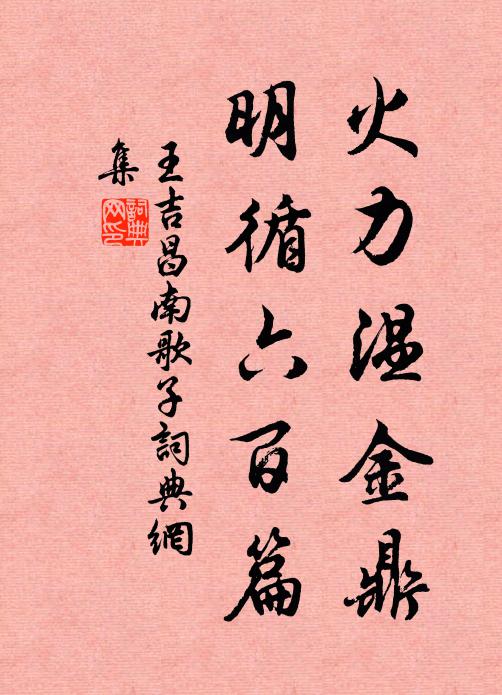 火力温金鼎
明循六百篇
王吉昌南歌子詞典網
集
詞典
网印